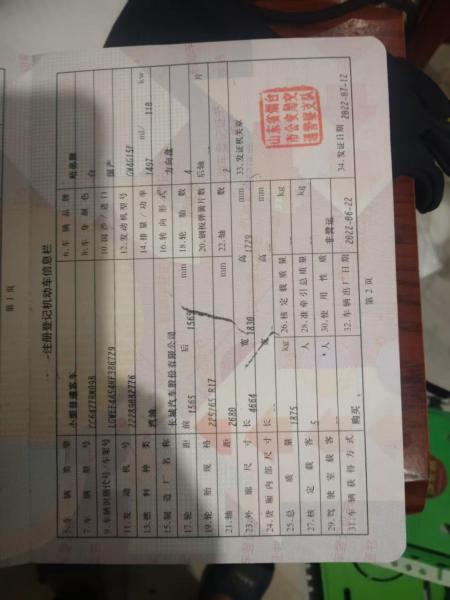 第1页
注册登记机动车信息栏
5.车辆类型 小型普通客车 6.车辆品牌 哈弗牌
7.车辆型号 CC6472RM09B 8.车身颜色 白
9.车辆识别代号/车架号 10.国产/进口 国产
11.发动机号 12.发动机型号 GW4G15F
13.燃料种类 汽油 14.排量/功率 1497 ml/ 110 kw
15.制造厂名称 长城汽车股份有限公司 16.转向形式 方向盘
17.轮距 前 1565 后 1569 mm 18.轮胎数 4
19.轮胎规格 225/65 R17 20.钢板弹簧片数 后轴 片
21.轴距 2680 mm 22.轴数 2
23.外廓尺寸 长 4664 宽 1830 高 1729 mm
24.货厢内部尺寸 长 宽 高 mm
25.总质量 1875 kg 26.核定载质量 kg
27.核定载客 5 人 28.准牵引总质量 kg
29.驾驶室载客 人 30.使用性质 非营运
31.车辆获得方式 购买 32.车辆出厂日期 2022-06-22
33.发证机关章
山东省烟台
市公安局交
通警察支队
34.发证日期 2022-07-12
第2页